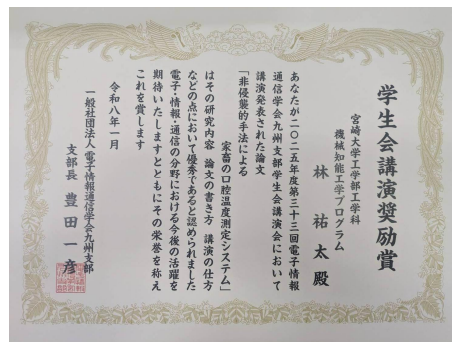 学生会講演奨励賞
宮崎大学工学部工学科
機械知能工学プログラム
林 祐太 殿
あなたが二〇二五年度第三十三回電子情報
通信学会九州支部学生会講演会において
講演発表された論文
「非侵襲的手法による
家畜の口腔温度測定システム」
はその研究内容 論文の書き方 講演の仕方
などの点において優秀であると認められました
電子・情報・通信の分野における今後の活躍を
期待いたしますとともにその栄誉を称え
これを賞します
令和八年一月
一般社団法人 電子情報通信学会九州支部
支部長 豊田一彦